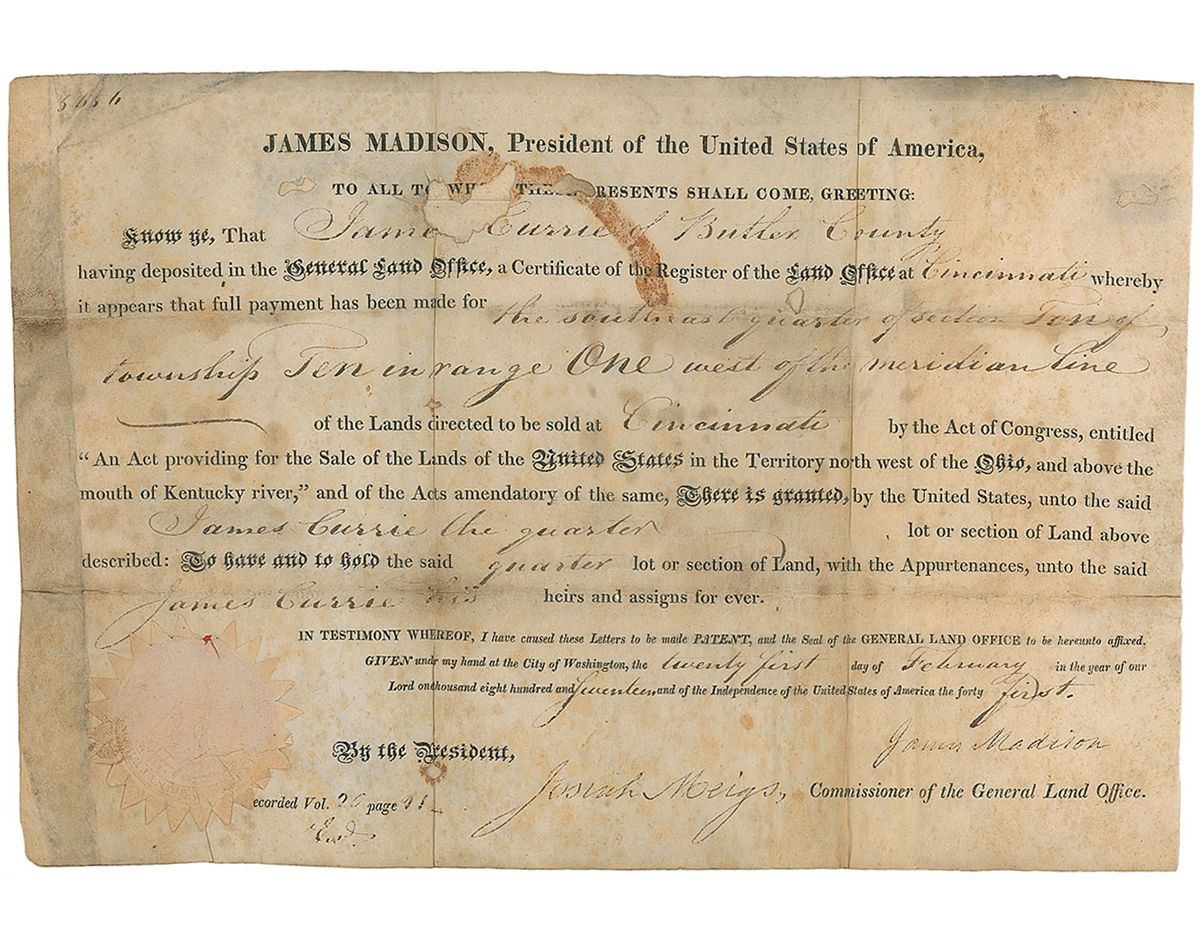 5656
JAMES MADISON, President of the United States of America,
TO ALL TO WH THESE PRESENTS SHALL COME, GREETING:
Know ye, That Jame Currie of Butler County
having deposited in the General Land Office, a Certificate of the Register of the Land Office at Cincinnati whereby
it appears that full payment has been made for the southeast quarter of section Ten of
township Ten in range One west of the meridian line
of the Lands directed to be sold at Cincinnati by the Act of Congress, entitled
“An Act providing for the Sale of the Lands of the United States in the Territory north west of the Ohio, and above the
mouth of Kentucky river,” and of the Acts amendatory of the same, There is granted, by the United States, unto the said
James Currie the quarter lot or section of Land above
described: To have and to hold the said quarter lot or section of Land, with the Appurtenances, unto the said
James Currie his heirs and assigns for ever.
IN TESTIMONY WHEREOF, I have caused these Letters to be made PATENT, and the Seal of the GENERAL LAND OFFICE to be hereunto affixed.
GIVEN under my hand at the City of Washington, the twenty first day of February in the year of our
Lord one thousand eight hundred and seventeen and of the Independence of the United States of America the forty first.
By the President, James Madison
Josiah Meigs, Commissioner of the General Land Office.
ecorded Vol. 26 page